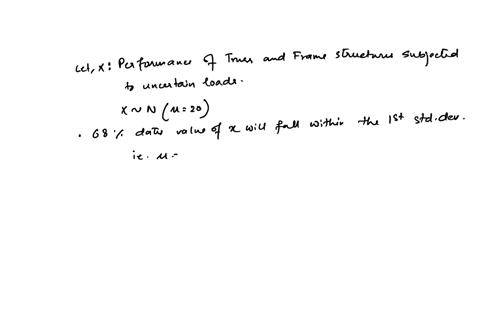 Let, X: Performance of Truss and Frame structures subjected
to uncertain loads.
X ~ N (μ=20)
. 68 % data value of x will fall within the 1st std.dev.
ie. μ-